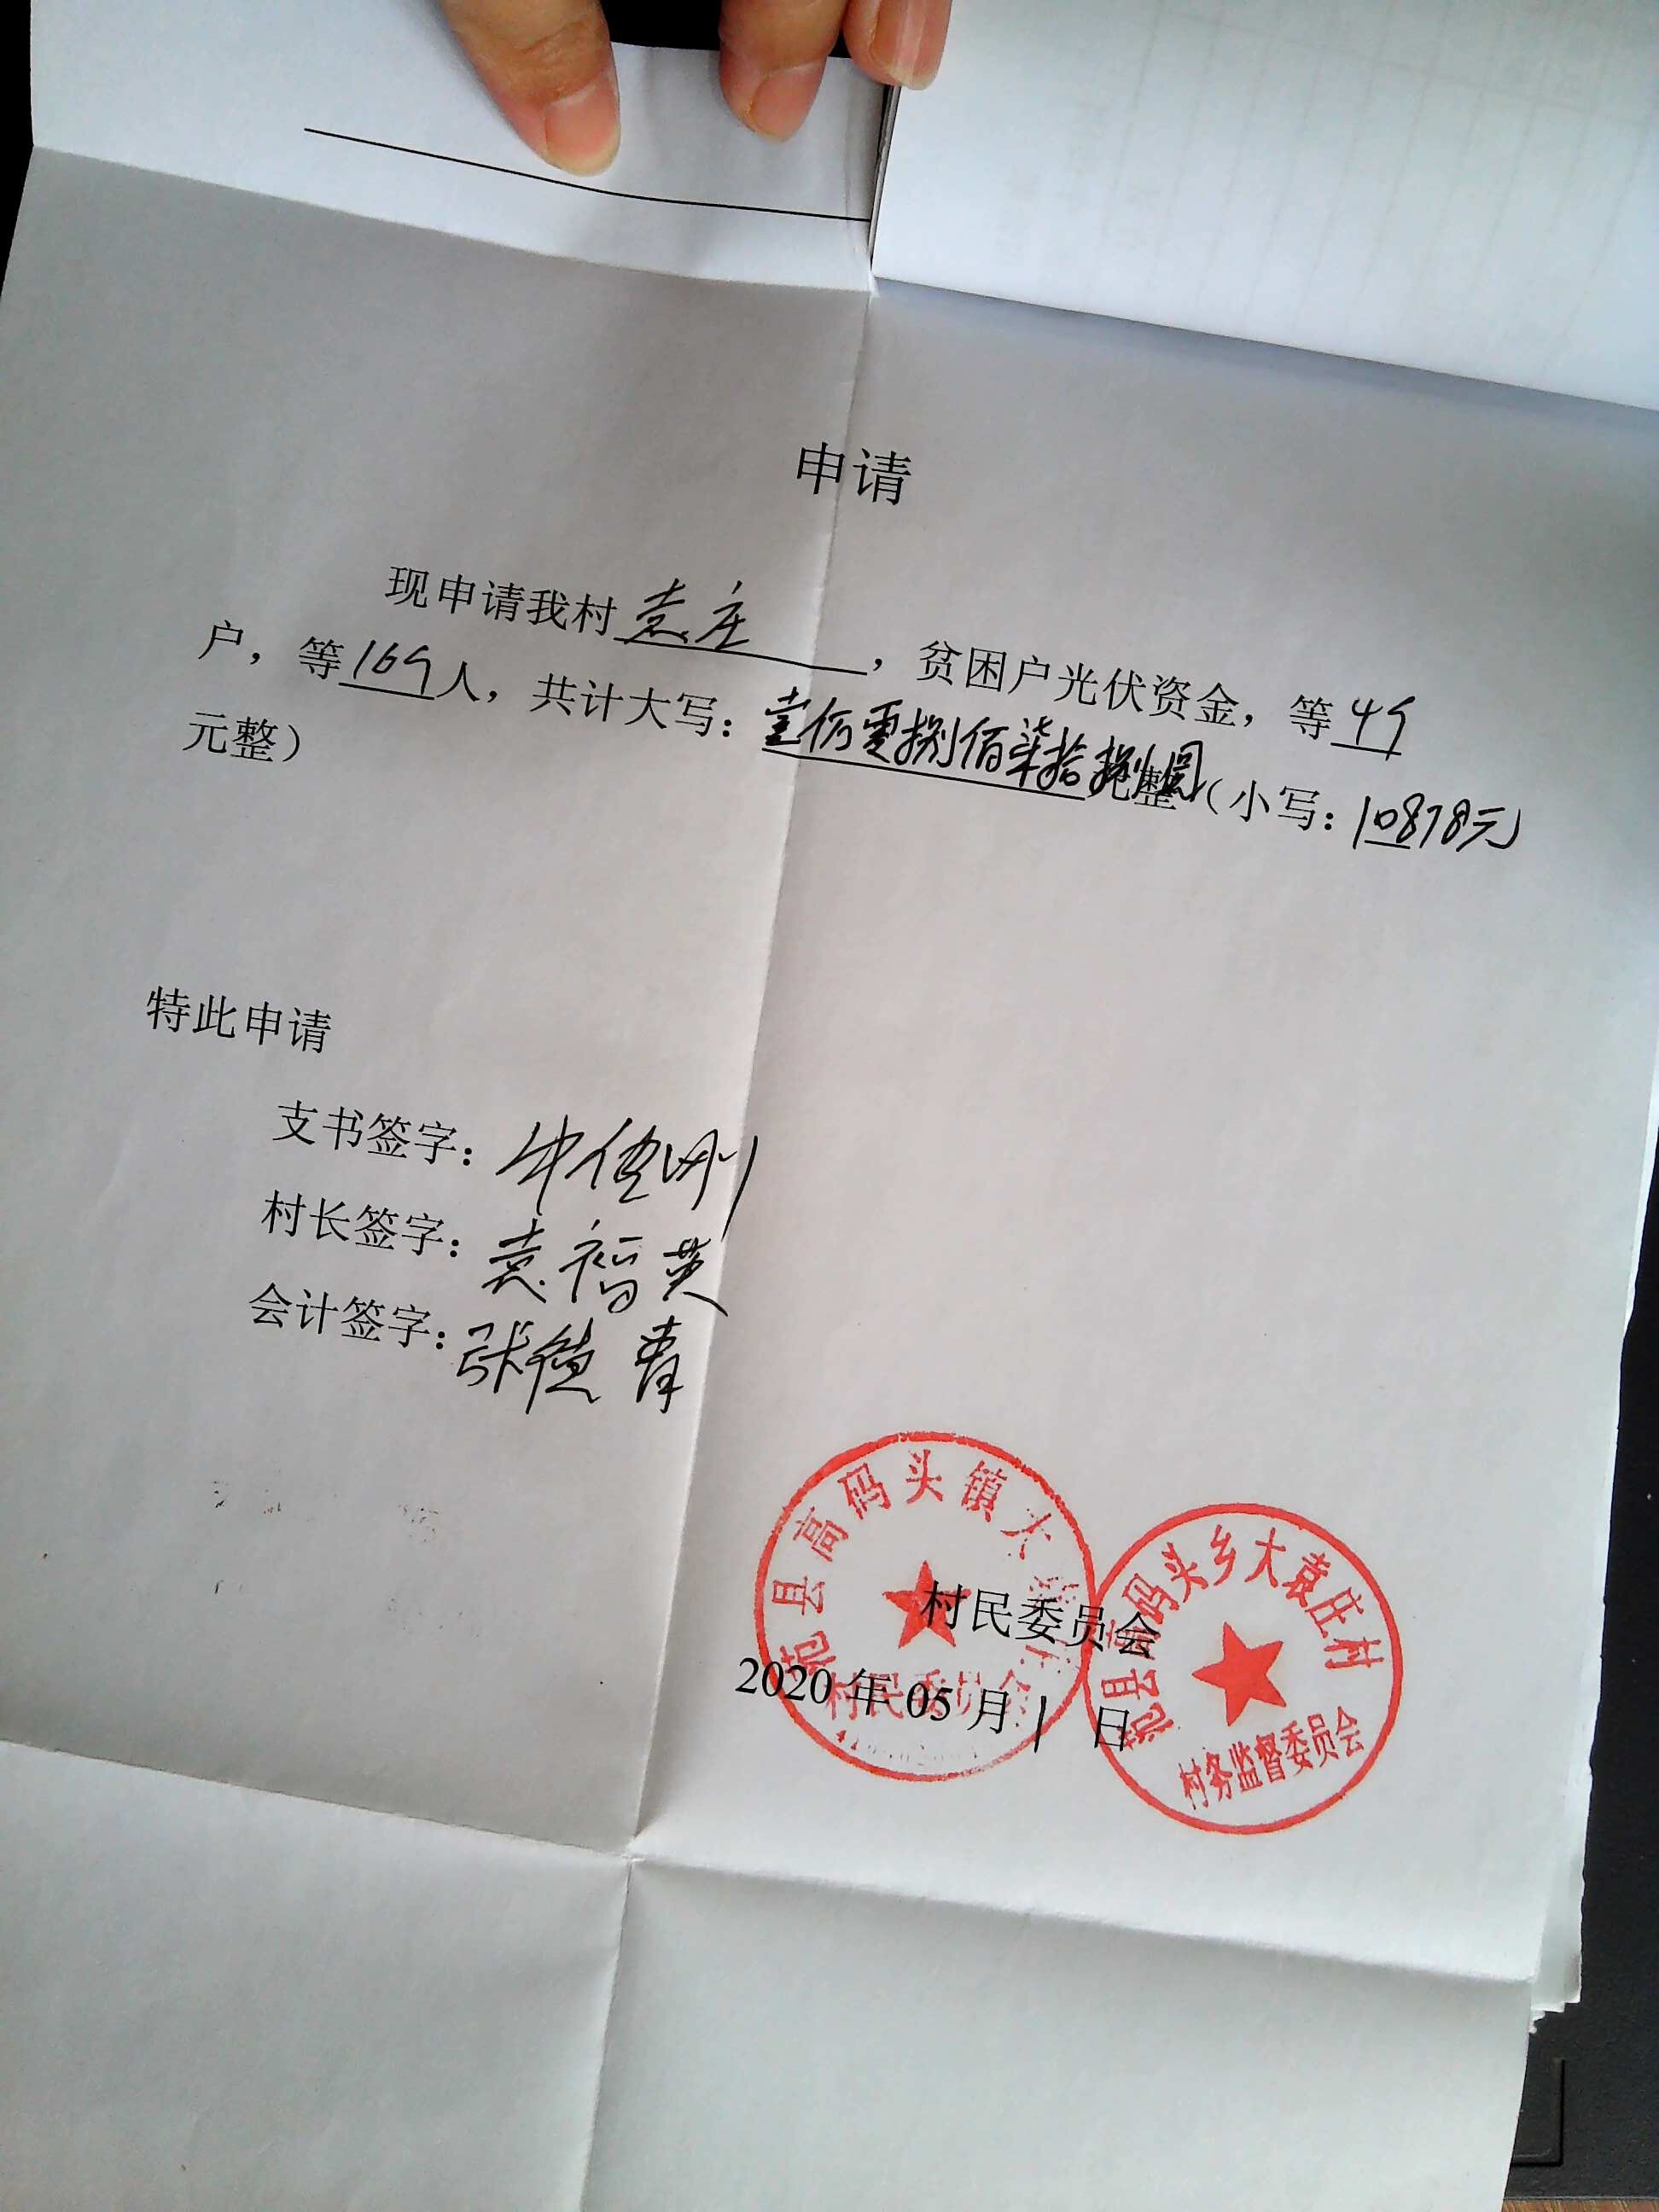 申请
现申请我村袁庄，贫困户光伏资金，等49
户，等169人，共计大写：壹万零捌佰柒拾捌圆整（小写：10878元
元整）
特此申请
支书签字：
村长签字：袁福英
会计签字：张德青
村民委员会
2020年05月1日
范县高码头镇大
村民委员会
范县高码头乡大袁庄村
村务监督委员会